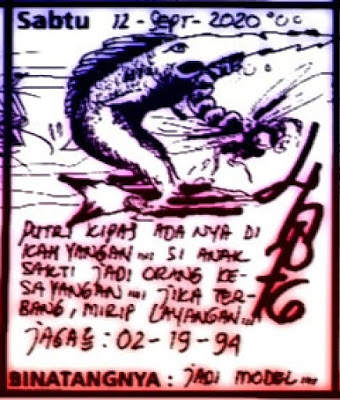 Sabtu 12 - Sept - 2020
PUTRI KIPAS ADA NYA DI
KAH YANGAN .... SI ANAK
SAKTI JADI ORANG KE-
SA YANGAN .... JIKA TER-
BANG, MIRIP LAYANGAN ....
JAGA2 : 02 - 19 - 94
BINATANGNYA : JADI MODEL ....